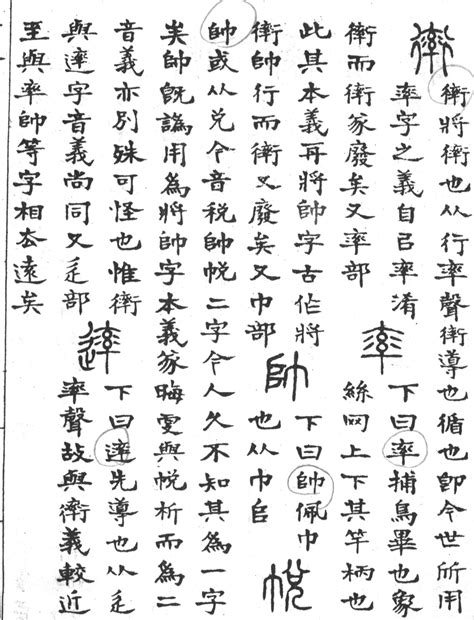 𧗿
𧗿將𧗿也从行率聲𧗿導也循也卽今世所用
率字之義自㠯率淆
𧗿而𧗿篆廢矣又率部
率
下曰率捕鳥畢也象
絲网上下其竿柄也
此其本義再將帥字古作將
𧗿帥行而𧗿又廢矣又巾部
帥
下曰帥佩巾
也从巾𠂤
帨
帥或从兌今音稅帥帨二字今人久不知其為一字
矣帥旣譌用為將帥字本義篆晦爰與帨析而為二
音義亦別殊可怪也惟𧗿
與䢦字音義尚同又辵部
䢦
下曰䢦先導也从辵
率聲故與𧗿義較近
至與率帥等字相去遠矣